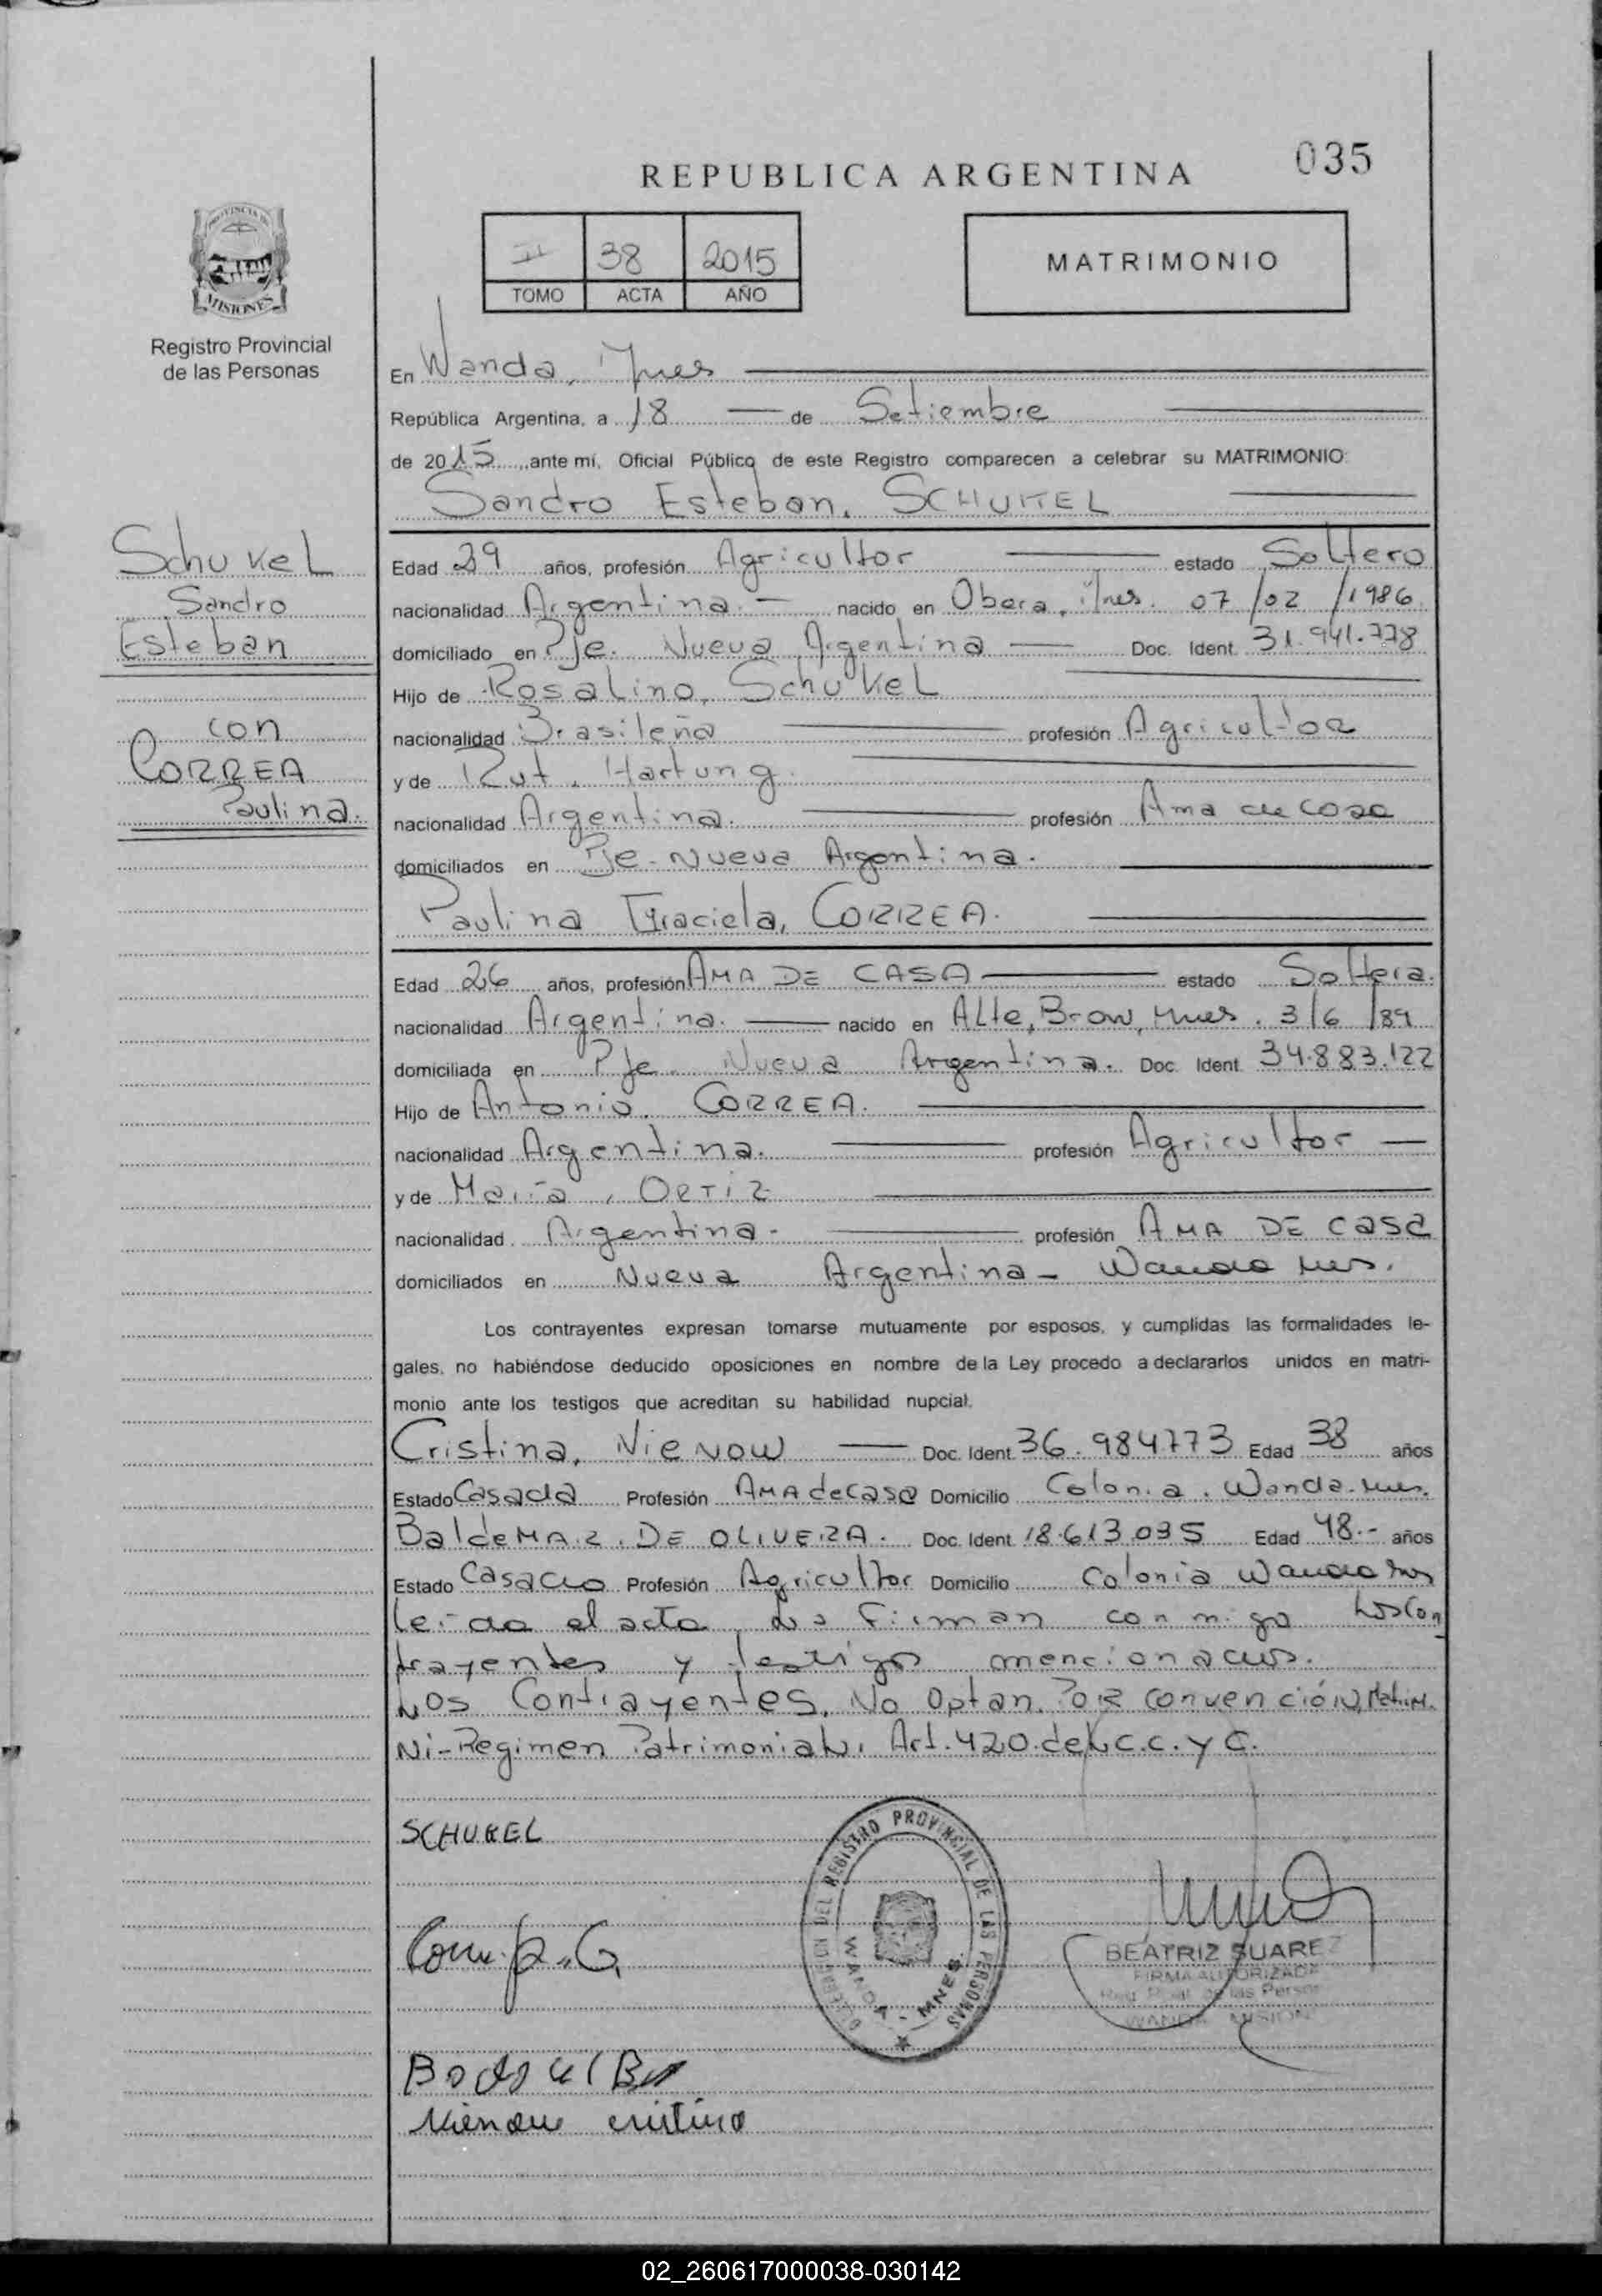 035
REPUBLICA ARGENTINA
II 38 2015
TOMO ACTA AÑO
MATRIMONIO
PROVINCIA DE
MISIONES
Registro Provincial
de las Personas
En Wanda, Mnes
República Argentina, a 18 de Setiembre
de 2015, ante mí, Oficial Público de este Registro comparecen a celebrar su MATRIMONIO:
Sandro Esteban, SCHUKEL
Schukel
Sandro
Esteban
con
CORREA
Paulina.
Edad 29 años, profesión Agricultor estado Soltero
nacionalidad Argentina.- nacido en Obera, Mnes. 07/02/1986
domiciliado en Pje. Nueva Argentina Doc. Ident. 31.941.778
Hijo de Rosalino, Schukel
nacionalidad Brasileña profesión Agricultor
y de Rut, Hartung
nacionalidad Argentina. profesión Ama de casa
domiciliados en Pje-Nueva Argentina.
Paulina Graciela, CORREA.
Edad 26 años, profesión AMA DE CASA estado Soltera.
nacionalidad Argentina. nacido en Alte, Brow, Mnes. 3/6/89
domiciliada en Pje. Nueva Argentina. Doc. Ident. 34.883.122
Hijo de Antonio, CORREA.
nacionalidad Argentina. profesión Agricultor
y de María, ORTIZ
nacionalidad Argentina- profesión AMA DE casa
domiciliados en Nueva Argentina- Wanda Mnes.
Los contrayentes expresan tomarse mutuamente por esposos, y cumplidas las formalidades le-
gales, no habiéndose deducido oposiciones en nombre de la Ley procedo a declararlos unidos en matri-
monio ante los testigos que acreditan su habilidad nupcial.
Cristina, Nienow Doc. Ident. 36.984773 Edad 38 años
Estado Casada Profesión AMA de Casa Domicilio Colonia. Wanda. Mnes.
BaldeMAR, DE OLIVEIRA. Doc. Ident. 18.613.035 Edad 48.- años
Estado Casado Profesión Agricultor Domicilio Colonia Wanda Mnes
Leída el acta La Firman conmigo Los con
trayentes y testigos mencionados.
Los Contrayentes, No Optan. POR convención, Matrim.
Ni-Regimen Patrimonial. Art. 420. del C.C. y C.
SCHUKEL
DEL REGISTRO PROVINCIAL DE LAS PERSONAS
WANDA - MNES.
BEATRIZ SUAREZ
FIRMA AUTORIZADA
Reg. Pcial. de las Person
WANDA MISION
Nienow cristina
02_260617000038-030142